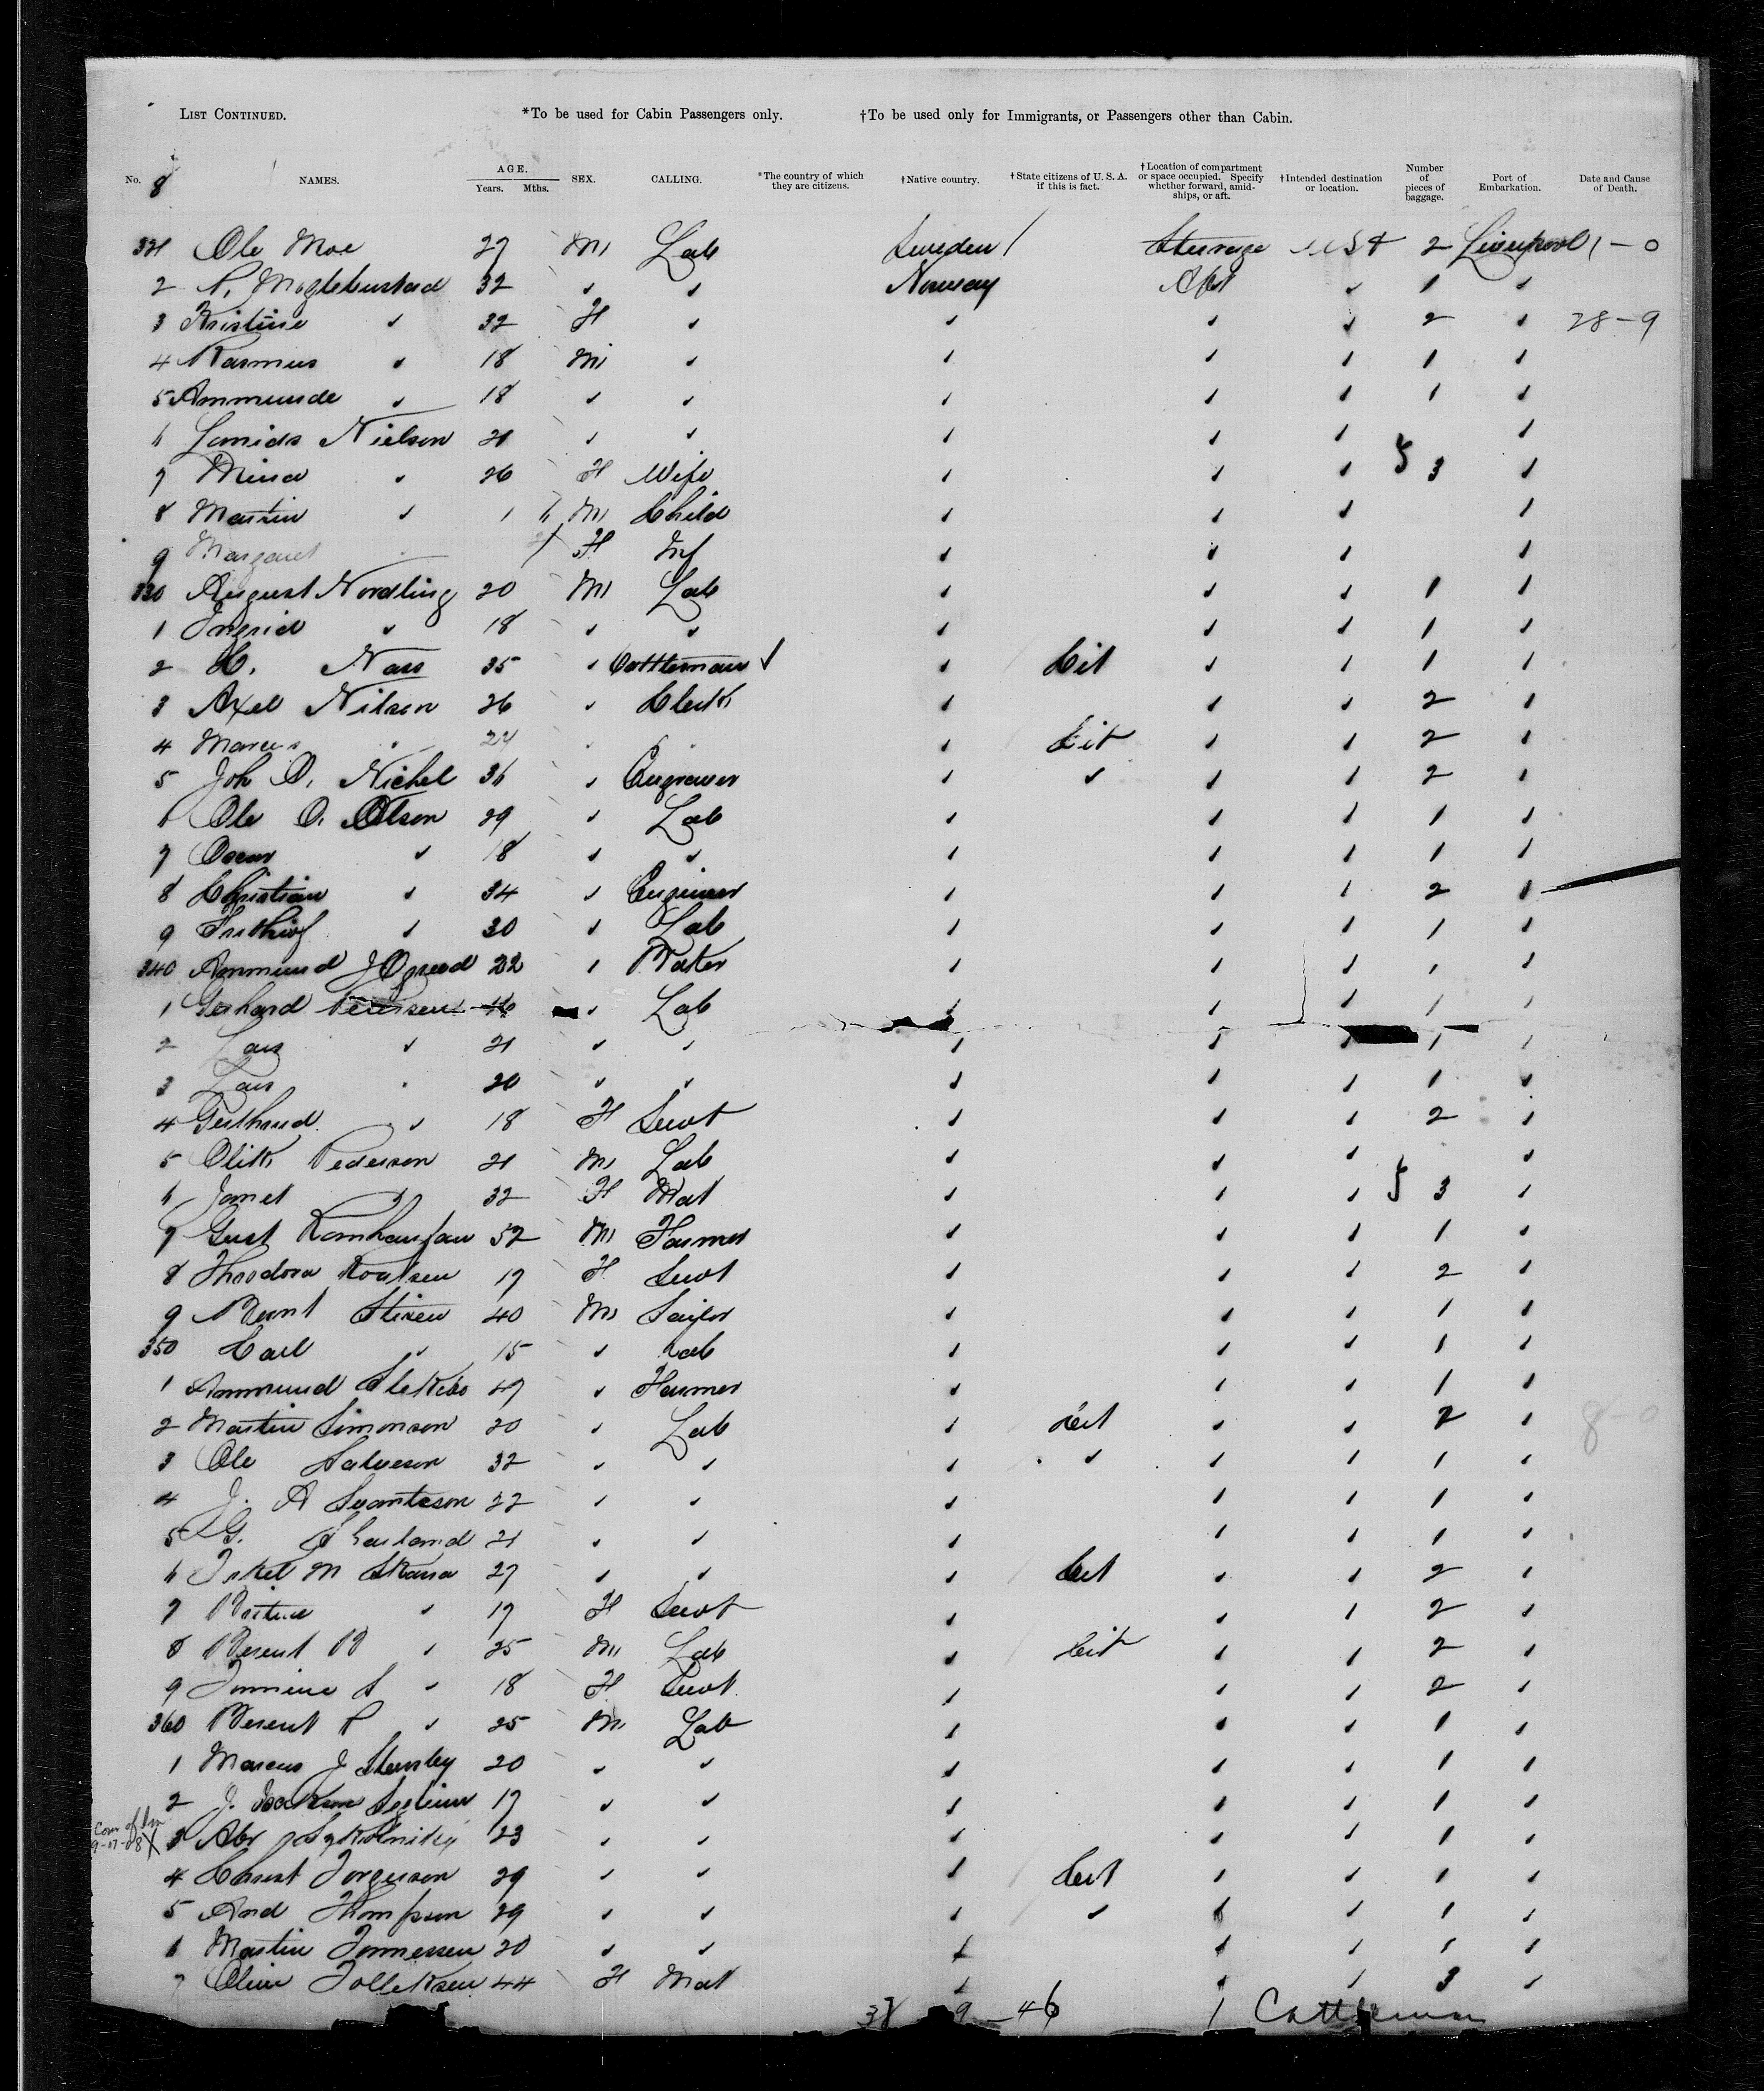 LIST CONTINUED. *To be used for Cabin Passengers only. †To be used only for Immigrants, or Passengers other than Cabin.
No. 8 NAMES. AGE. Years. Mths. SEX. CALLING. *The country of which they are citizens. †Native country. †State citizens of U. S. A. if this is fact. †Location of compartment or space occupied. Specify whether forward, amidships, or aft. †Intended destination or location. Number of pieces of baggage. Port of Embarkation. Date and Cause of Death.
321 Ole Moe 27 M Lab Sweden / Steerage USA 2 Liverpool 1 - 0
2 N. 32 ✓ ✓ Norway Aft ✓ 1 ✓
3 Kristine ✓ 32 F ✓ ✓ ✓ ✓ 2 ✓ 28-9
4 Rasmus ✓ 18 M ✓ ✓ ✓ ✓ 1 ✓
5 Ammunde ✓ 18 ✓ ✓ ✓ ✓ ✓ 1 ✓
6 Nielson 21 ✓ ✓ ✓ ✓ ✓ ✓
7 Mina ✓ 26 F Wife ✓ ✓ ✓ } 3 ✓
8 Martin ✓ 1 6 M Child ✓ ✓ ✓ ✓
9 Margaret F Inf ✓ ✓ ✓ ✓
330 August Nordling 20 M Lab ✓ ✓ ✓ 1 ✓
1 Ingrid ✓ 18 ✓ ✓ ✓ ✓ ✓ 1 ✓
2 C. Nass 35 ✓ Cattleman ✓ ✓ Cit ✓ ✓ 1 ✓
3 Axel Nilson 26 ✓ Clerk ✓ ✓ ✓ 2 ✓
4 Marcus 24 ✓ Cit ✓ ✓ 2 ✓
5 Joh O. Nickel 36 ✓ Engraver ✓ ✓ ✓ ✓ 2 ✓
6 Ole O. Olson 29 ✓ Lab ✓ ✓ ✓ 1 ✓
7 Oscar ✓ 18 ✓ ✓ ✓ ✓ ✓ 1 ✓
8 Christian ✓ 34 ✓ Engineer ✓ ✓ ✓ 2 ✓
9 Frithiof ✓ 30 ✓ Lab ✓ ✓ ✓ 1 ✓
340 Ammund 22 ✓ Baker ✓ ✓ ✓ 1 ✓
1 Gerhard Petersen 16 ✓ Lab ✓ ✓ ✓ 1 ✓
2 Lars ✓ 21 ✓ ✓ ✓ ✓ ✓ 1 ✓
3 Lars 20 ✓ ✓ ✓ ✓ ✓ 1 ✓
4 ✓ 18 F Servt ✓ ✓ ✓ 2 ✓
5 Pederson 21 M Lab ✓ ✓ ✓ ✓
6 Janet 32 F Mat ✓ ✓ ✓ } 3 ✓
7 Gust 52 M Farmer ✓ ✓ ✓ 1 ✓
8 Theodora 17 F Servt ✓ ✓ ✓ 2 ✓
9 Bernt 40 M Sailor ✓ ✓ ✓ 1 ✓
350 Carl ✓ 15 ✓ Lab ✓ ✓ ✓ 1 ✓
1 Ammund 47 ✓ Farmer ✓ ✓ ✓ 1 ✓
2 Martin Simonson 20 ✓ Lab ✓ Cit ✓ ✓ 2 ✓ 8-0
3 Ole Salveson 32 ✓ ✓ ✓ ✓ ✓ ✓ 1 ✓
4 J. A Svanteson 22 ✓ ✓ ✓ ✓ ✓ 1 ✓
5 G. 21 ✓ ✓ ✓ ✓ ✓ 1 ✓
6 M 27 ✓ ✓ ✓ Cit ✓ ✓ 2 ✓
7 ✓ 17 F Servt ✓ ✓ ✓ 2 ✓
8 Berent B ✓ 25 M Lab ✓ Cit ✓ ✓ 2 ✓
9 S ✓ 18 F Servt ✓ ✓ ✓ 2 ✓
360 Berent P ✓ 25 M Lab ✓ ✓ ✓ 1 ✓
1 Marcus J 20 ✓ ✓ ✓ ✓ ✓ 1 ✓
2 J. 17 ✓ ✓ ✓ ✓ ✓ 1 ✓
3 Abr 23 ✓ ✓ ✓ ✓ ✓ 1 ✓
4 Christ Torgerson 29 ✓ ✓ ✓ Cit ✓ ✓ 1 ✓
5 And Thompson 29 ✓ ✓ ✓ ✓ ✓ ✓ 1 ✓
6 Martin Tonnessen 20 ✓ ✓ ✓ ✓ ✓ 1 ✓
7 Oline Tolleksen 44 F Mat ✓ ✓ ✓ 3 ✓
9 - 46 1 Cattleman